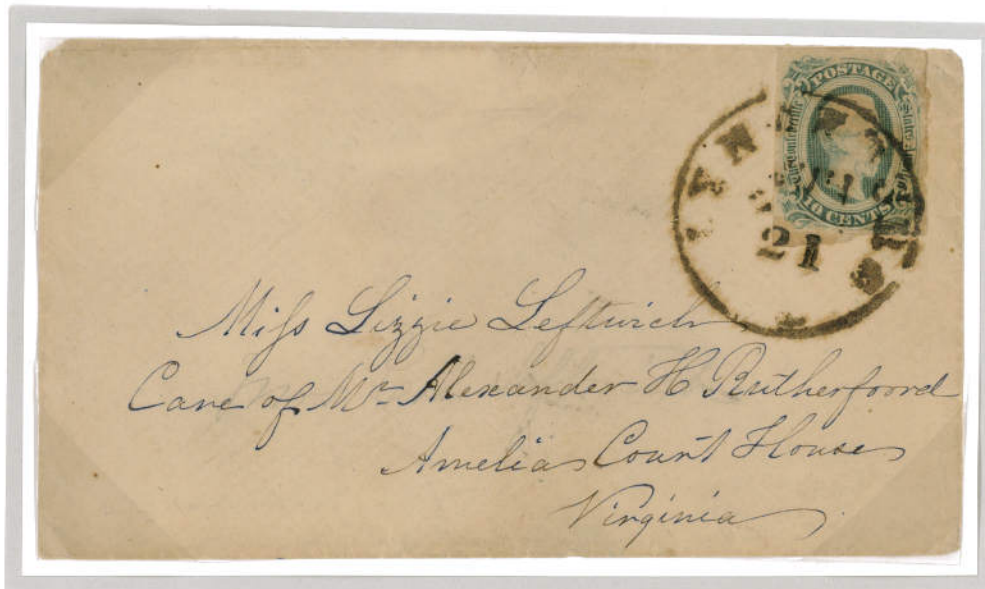 POSTAGE
The Confederate States
10 CENTS
21
Miss Lizzie Leftwich
Care of Mr. Alexander H Rutherfoord
Amelia Court House
Virginia